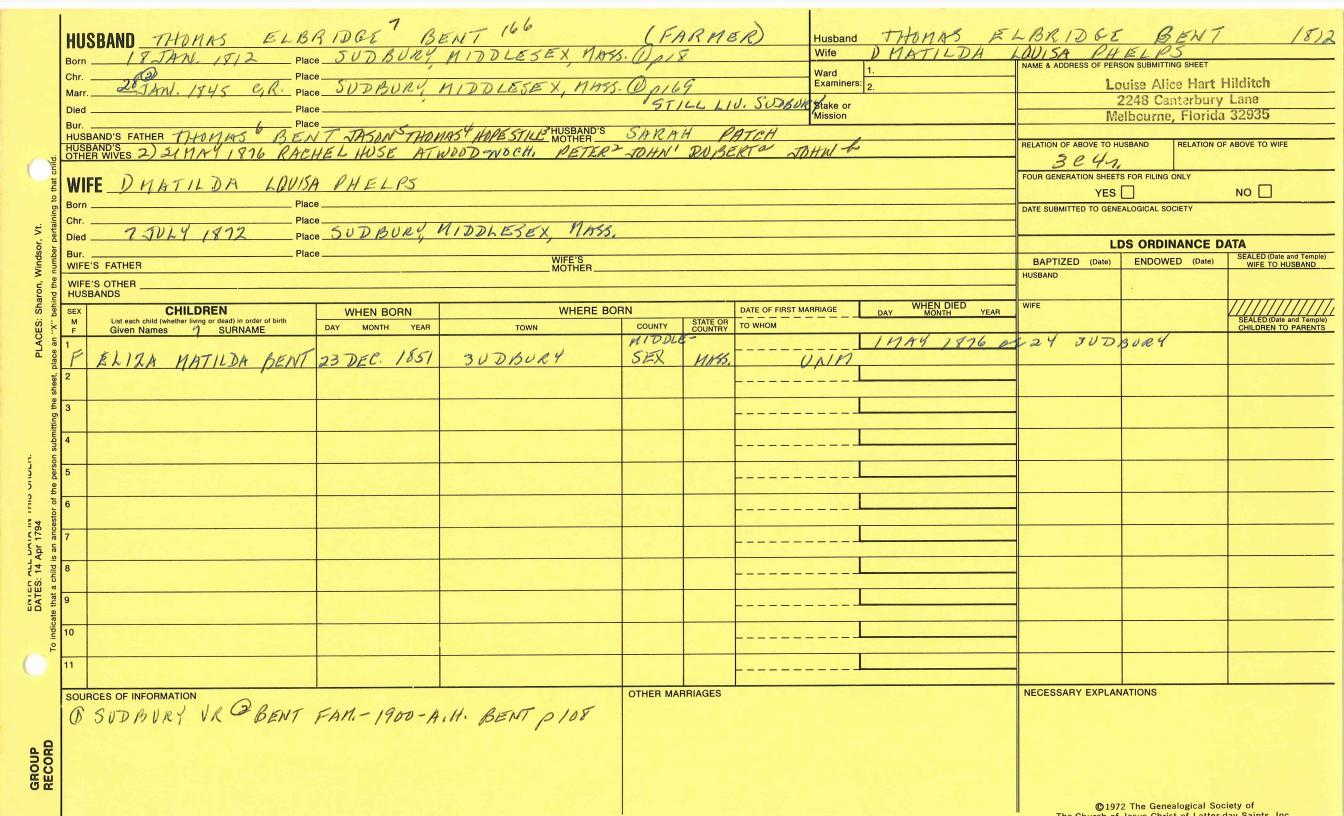 HUSBAND THOMAS ELBRIDGE 7 BENT 166 (FARMER)
Born 18 JAN. 1812 Place SUDBURY, MIDDLESEX, MASS. ① p18
Chr. Place
Marr. JAN. 1845 C.R. Place SUDBURY, MIDDLESEX, MASS. ① p169
Died Place STILL LIV. SUDBURY
Bur. Place
HUSBAND'S FATHER THOMAS 6 BENT JASON 5 THOMAS 4 HOPESTILL 3 HUSBAND'S MOTHER SARAH PATCH
HUSBAND'S OTHER WIVES 2) 21 MAY 1876 RACHEL HUSE ATWOOD-NOCH. PETER 2 JOHN 1 ROBERT a JOHN b
WIFE D MATILDA LOUISA PHELPS
Born Place
Chr. Place
Died 7 JULY 1872 Place SUDBURY, MIDDLESEX, MASS.
Bur. Place
WIFE'S FATHER WIFE'S MOTHER
WIFE'S OTHER HUSBANDS
Husband THOMAS ELBRIDGE BENT 1812
Wife D MATILDA LOUISA PHELPS
Ward Examiners: 1.
2.
Stake or Mission
NAME & ADDRESS OF PERSON SUBMITTING SHEET
Louise Alice Hart Hilditch
2248 Canterbury Lane
Melbourne, Florida 32935
RELATION OF ABOVE TO HUSBAND RELATION OF ABOVE TO WIFE
3C4r
FOUR GENERATION SHEETS FOR FILING ONLY
YES NO
DATE SUBMITTED TO GENEALOGICAL SOCIETY
LDS ORDINANCE DATA
BAPTIZED (Date) ENDOWED (Date) SEALED (Date and Temple) WIFE TO HUSBAND
HUSBAND
WIFE
SEALED (Date and Temple) CHILDREN TO PARENTS
SEX M F
CHILDREN
List each child (whether living or dead) in order of birth
Given Names 7 SURNAME
WHEN BORN
DAY MONTH YEAR
WHERE BORN
TOWN COUNTY STATE OR COUNTRY
DATE OF FIRST MARRIAGE
TO WHOM
WHEN DIED
DAY MONTH YEAR
1 F ELIZA MATILDA BENT 23 DEC. 1851 SUDBURY MIDDLE-SEX MASS. UNM 1 MAY 1876 ae 24 SUDBURY
2
3
4
5
6
7
8
9
10
11
SOURCES OF INFORMATION
① SUDBURY VR ② BENT FAM.-1900-A.H. BENT p108
OTHER MARRIAGES
NECESSARY EXPLANATIONS
©1972 The Genealogical Society of
The Church of Jesus Christ of Latter-day Saints, Inc.
PLACES: Sharon, Windsor, Vt.
ENTER ALL DATA IN THIS ORDER:
DATES: 14 Apr 1794
To indicate that a child is an ancestor of the person submitting the sheet, place an "X" behind the number pertaining to that child.
GROUP RECORD